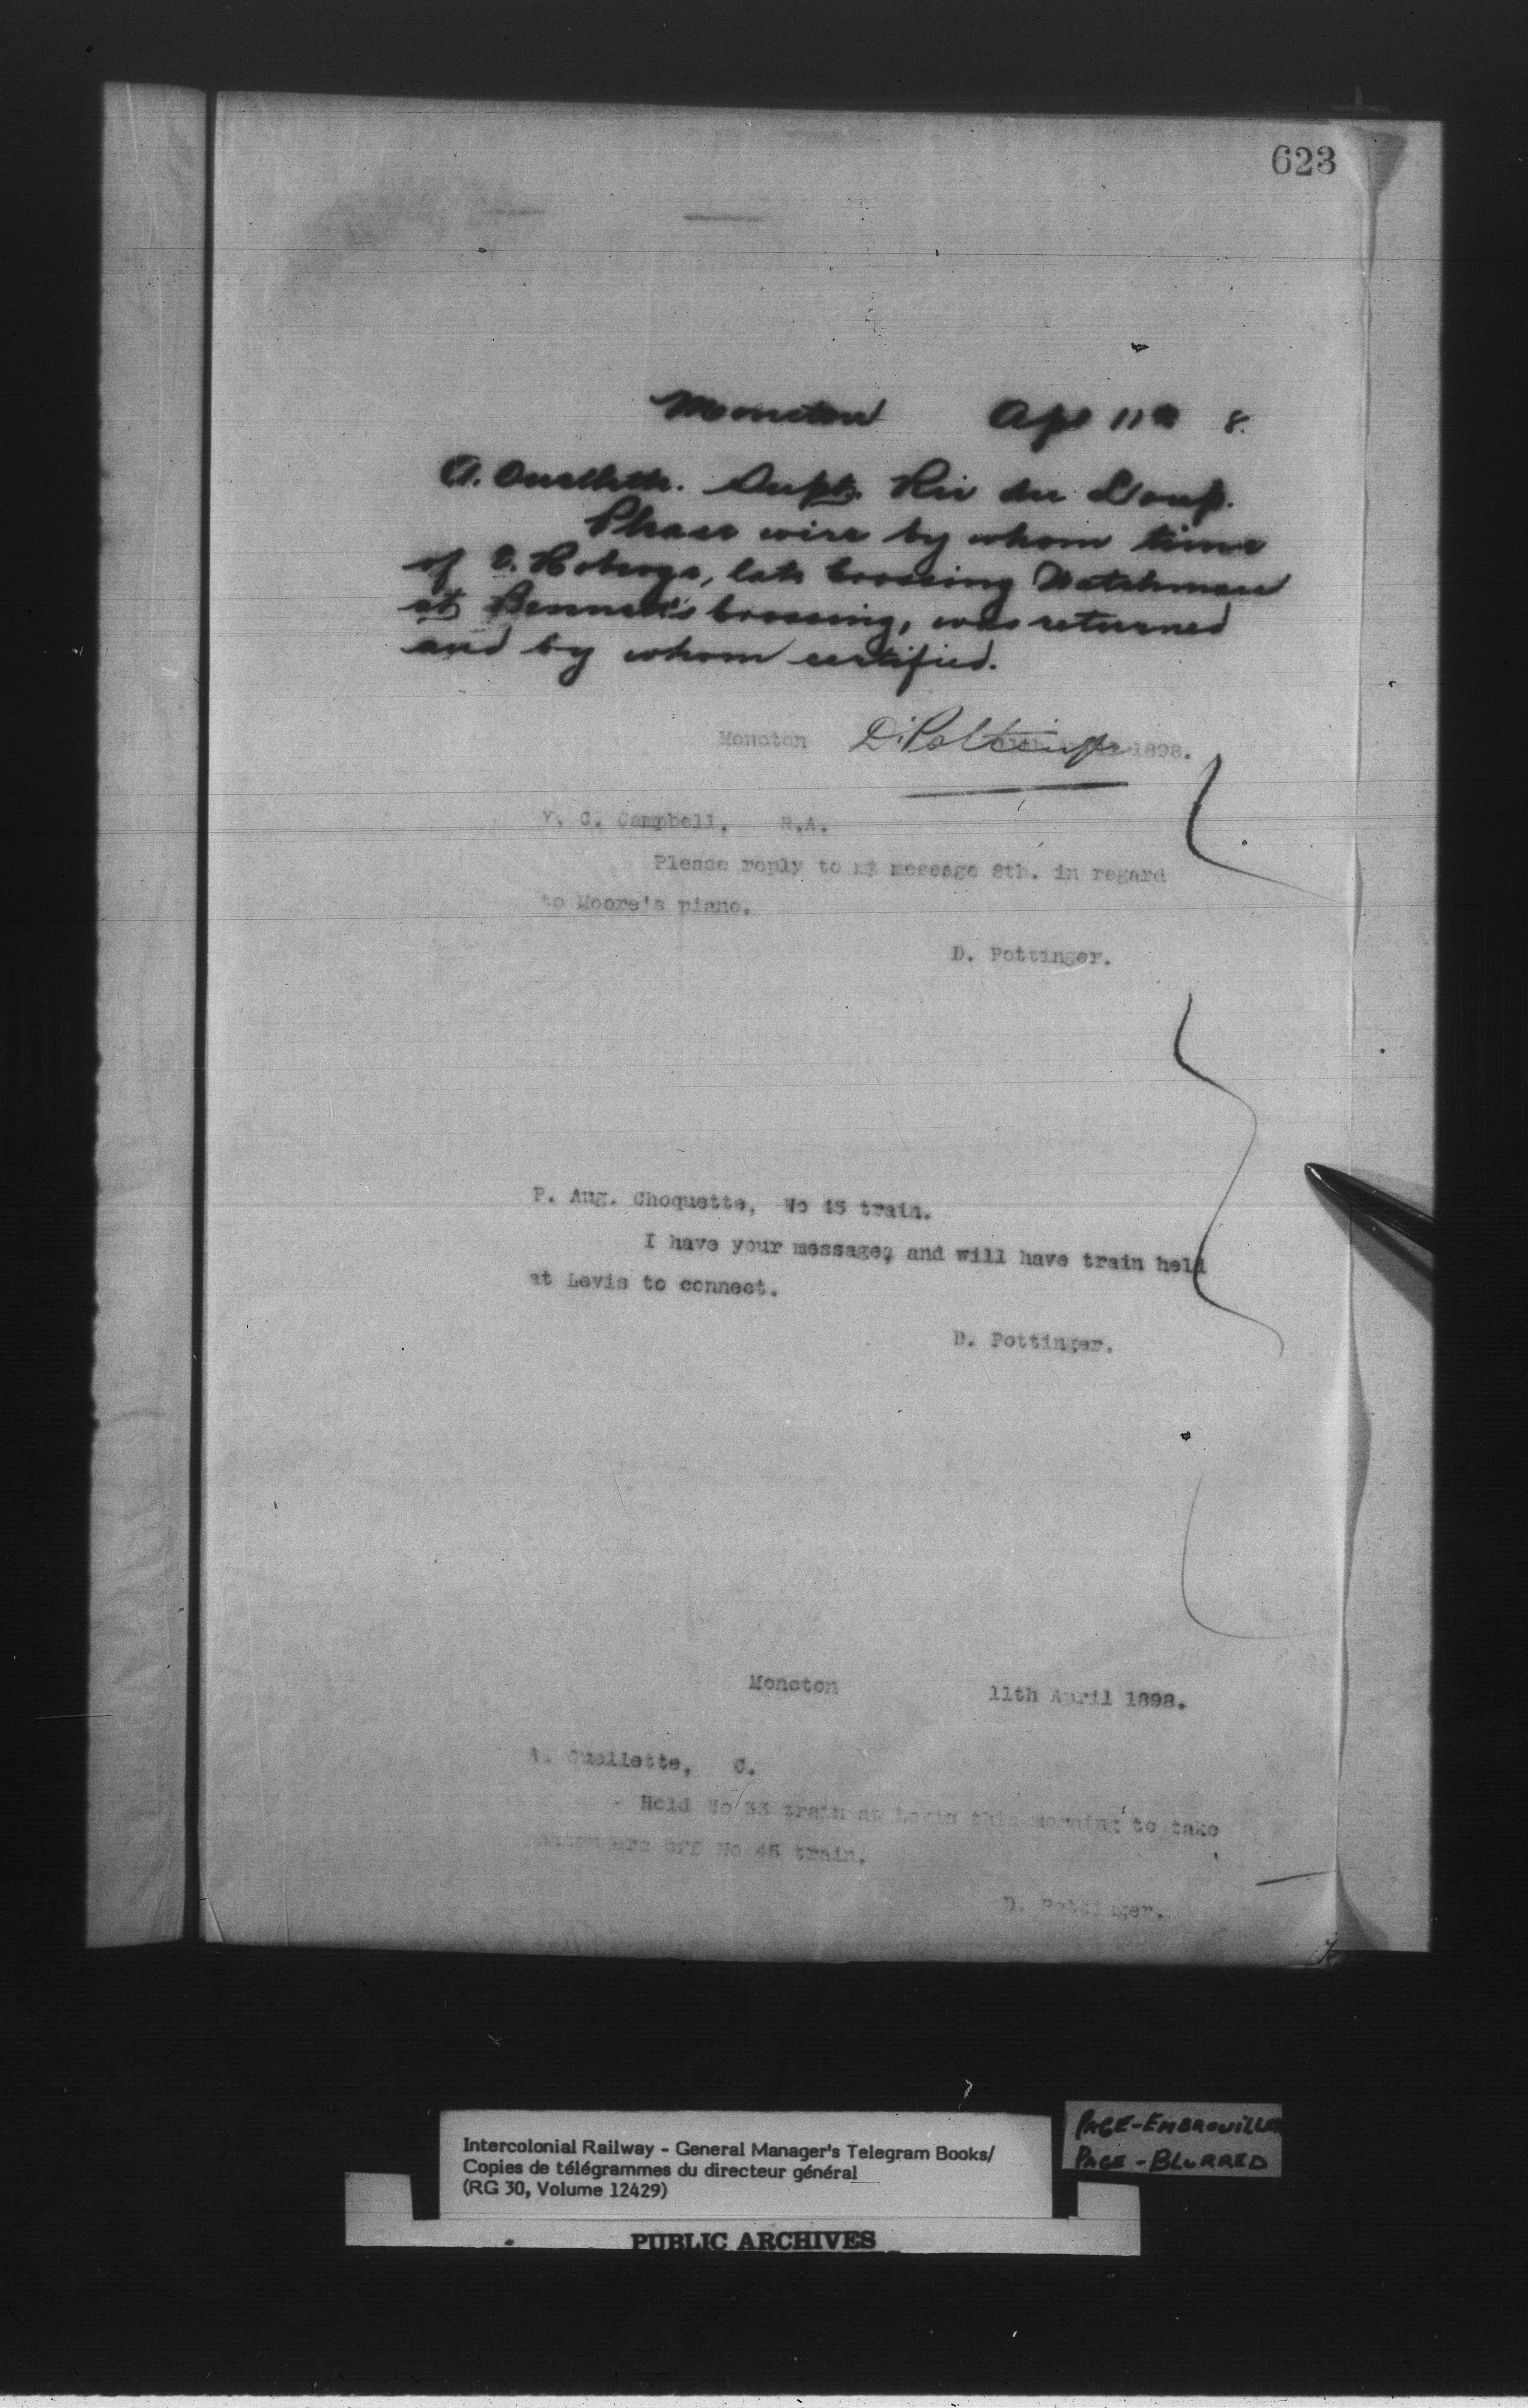 623
Moncton Apl 11th 8.
A. Ouellette. Supt. Riv du Loup.
Please wire by whom time
of late Crossing Watchman
at Bennett's Crossing, was returned
and by whom certified.
D. Pottinger
Moncton 11th 1898.
C. Campbell, R.A.
Please reply to my message 8th. in regard
to Moore's piano.
D. Pottinger.
P. Aug. Choquette, No 45 train.
I have your message, and will have train held
at Levis to connect.
D. Pottinger.
Moncton 11th April 1898.
A. Ouellette, C.
Hold No 33 train at Levis this morning to take
passengers off No 45 train.
D. Pottinger.
Intercolonial Railway - General Manager's Telegram Books/
Copies de télégrammes du directeur général
(RG 30, Volume 12429)
PAGE-EMBROUILLÉ
PAGE-BLURRED
PUBLIC ARCHIVES